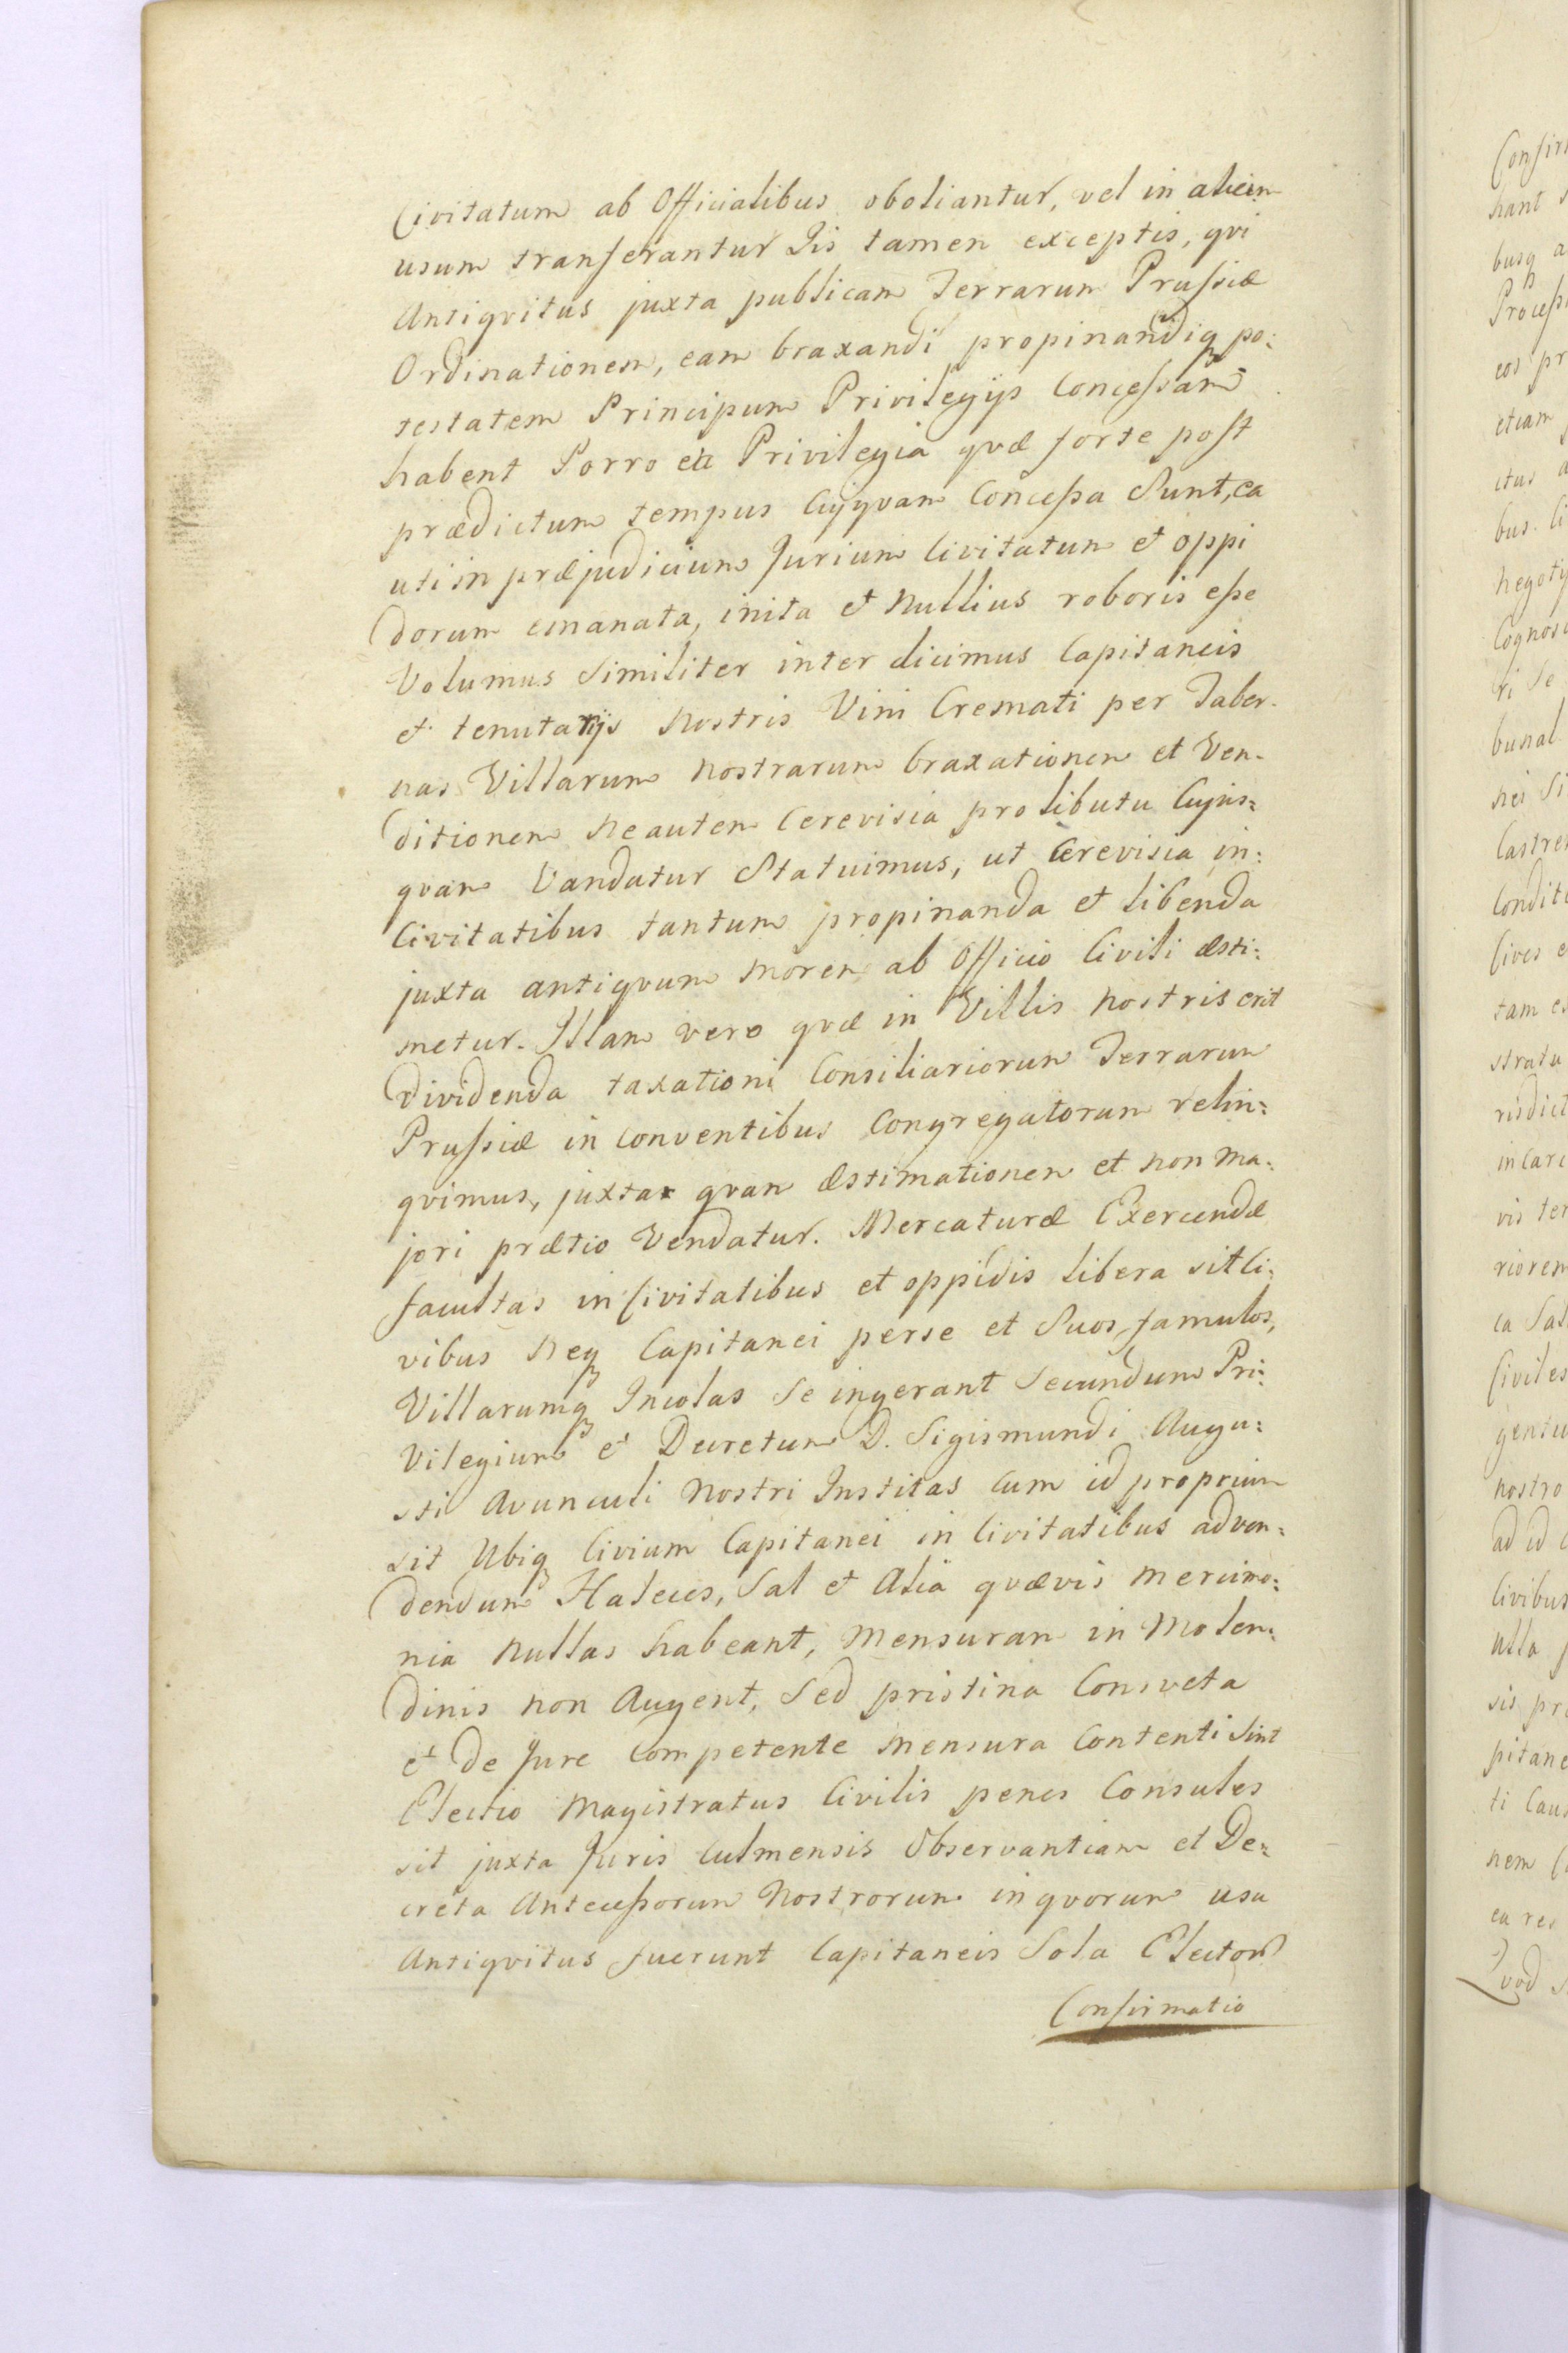 Civitatum ab Officialibus oboliantur, vel in alium
usum transferantur Iis tamen exceptis, qvi
Antiqvitus juxta publicam Terrarum Prussiæ
Ordinationem, eam braxandi propinandiq po:
testatem Principum Privilegijs Concessam
habent Porro ea Privilegia qvæ forte post
prædictum tempus Cujqvam Concessa Sunt, ea
uti in præjudicium Jurium Civitatum et oppi
dorum emanata, inita et Nullius roboris esse
Volumus Similiter inter dicimus Capitaneis
et tenutarijs Nostris Vini Cremati per Taber-
nas Villarum Nostrarum braxationem et Ven-
ditionem Ne autem Cerevisia pro libutu Cujus:
qvam Vandatur Statuimus, ut Cerevisia in:
Civitatibus tantum propinanda et libenda
juxta antiqvum Morem ab Officio Civili æsti:
metur. Illam vero qvæ in Villis Nostris erit
dividenda taxationi Consiliariorum Terrarum
Prussiæ in Conventibus Congregatorum relin:
qvimus, juxta qvam Æstimationem et non Ma:
jori prætio Vendatur. Mercaturæ Exercendæ
facultas in Civitatibus et oppidis libera sit Ci:
vibus Neq Capitanei perse et Suos famulos,
Villarumq Incolas Se ingerant Secundum Pri:
Vilegium et Decretum D. Sigismundi Augu:
sti Avunculi Nostri Institas Cum id proprium
sit Ubiq Civium Capitanei in Civitatibus ad ven:
dendum Haleces, Sal et Alia qvævis Mercimo:
nia Nullas habeant, Mensuram in Molen:
dinis non Augent, Sed pristina Consveta
et De Jure Competente Mensura Contenti Sint
Electio Magistratus Civilis penes Consules
sit juxta Juris Culmensis Observantiam et De:
creta Antecessorum Nostrorum in qvorum usu
Antiqvitus fuerunt Capitaneis Sola Electorum
Confirmatio